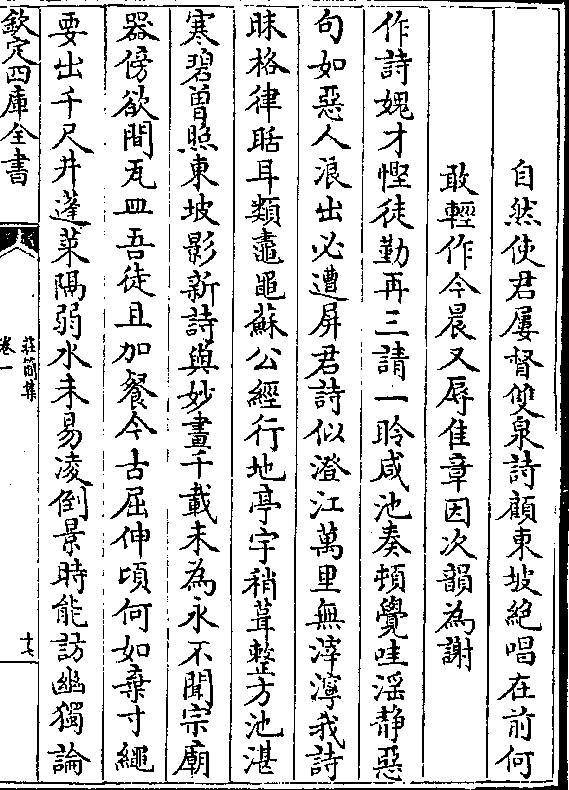 自然使君屢督雙泉詩顧東坡絶唱在前何
敢輕作今晨又辱佳章因次韻為謝
作詩媿才慳徒勤再三請一聆咸池奏頓覺哇滛静惡
句如惡人浪出必遭屏君詩似澄江萬里無滓濘我詩
昧格律聒耳類鼃黽蘇公經行地亭宇稍葺整方池湛
寒碧曽照東坡影新詩與妙畫千載未為永不聞宗廟
器傍欲間瓦皿吾徒且加餐今古屈伸頃何如棄寸䋲
要出千尺井蓬萊隔弱水未易凌倒景時能訪幽獨論
欽定四庫全書
莊簡集
卷一
十六